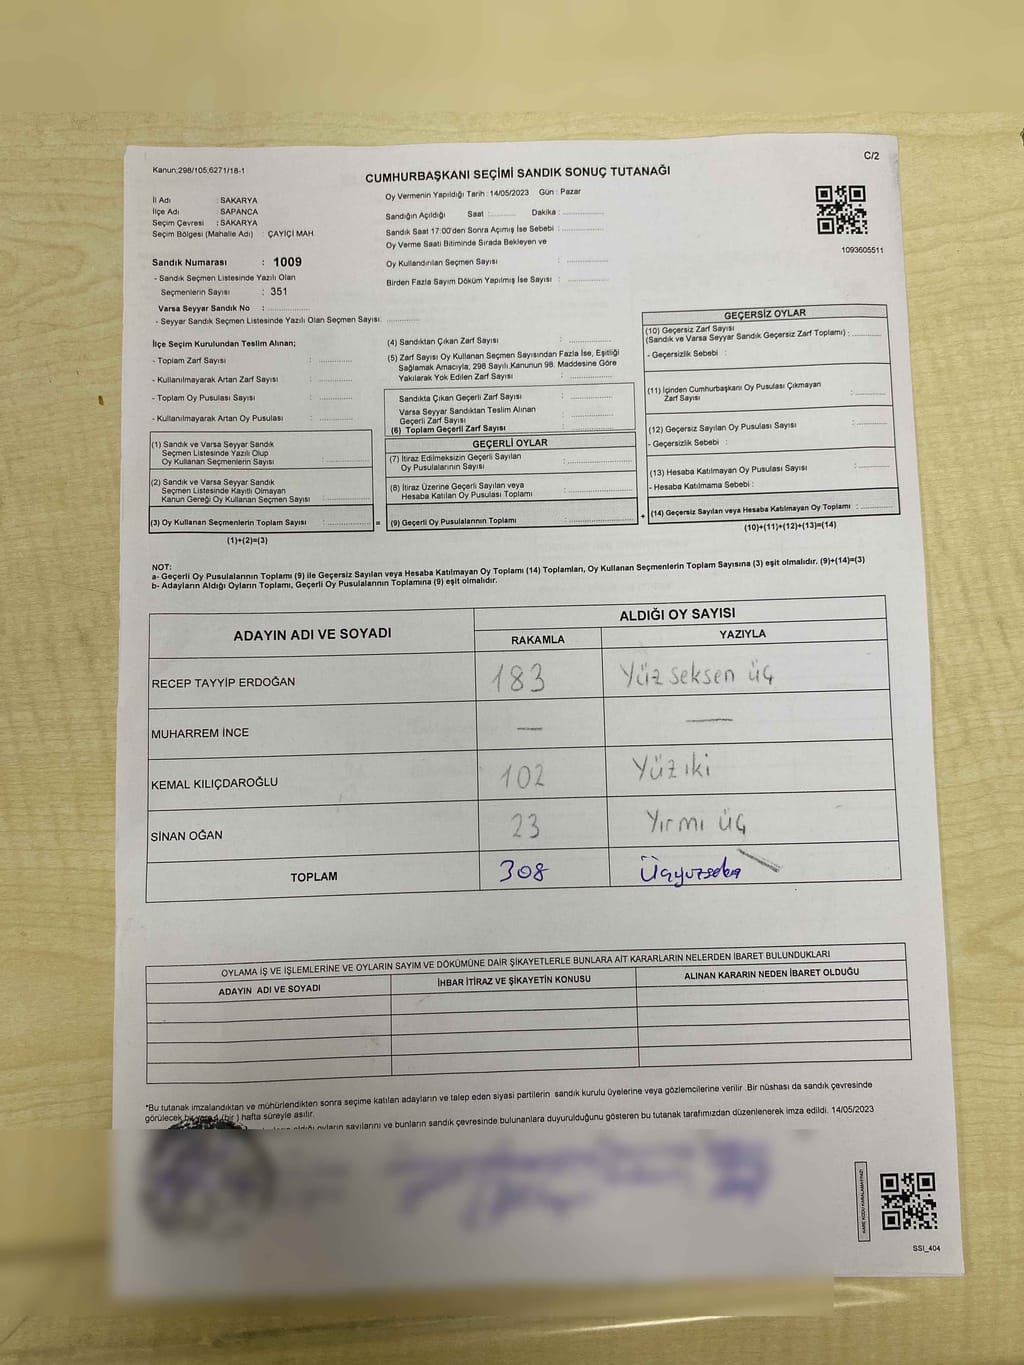 Kanun:298/105,6271/18-1
C/2
CUMHURBAŞKANI SEÇİMİ SANDIK SONUÇ TUTANAĞI
İl Adı : SAKARYA
İlçe Adı : SAPANCA
Seçim Çevresi : SAKARYA
Seçim Bölgesi (Mahalle Adı) : ÇAYİÇİ MAH.
Sandık Numarası : 1009
- Sandık Seçmen Listesinde Yazılı Olan
Seçmenlerin Sayısı : 351
Varsa Seyyar Sandık No : ..............
- Seyyar Sandık Seçmen Listesinde Yazılı Olan Seçmen Sayısı: ............
Oy Vermenin Yapıldığı Tarih : 14/05/2023 Gün : Pazar
Sandığın Açıldığı Saat :.......... Dakika :...............
Sandık Saat 17:00'den Sonra Açımış İse Sebebi :...............
Oy Verme Saati Bitiminde Sırada Bekleyen ve
Oy Kullandırılan Seçmen Sayısı : ...............
Birden Fazla Sayım Döküm Yapılmış İse Sayısı : ...............
1093605511
İlçe Seçim Kurulundan Teslim Alınan;
- Toplam Zarf Sayısı : ............
- Kullanılmayarak Artan Zarf Sayısı : ............
- Toplam Oy Pusulası Sayısı : ............
- Kullanılmayarak Artan Oy Pusulası : ............
(1) Sandık ve Varsa Seyyar Sandık
Seçmen Listesinde Yazılı Olup
Oy Kullanan Seçmenlerin Sayısı : ...............
(2) Sandık ve Varsa Seyyar Sandık
Seçmen Listesinde Kayıtlı Olmayan
Kanun Gereği Oy Kullanan Seçmen Sayısı : ...............
(3) Oy Kullanan Seçmenlerin Toplam Sayısı : ............... =
(1)+(2)=(3)
(4) Sandıktan Çıkan Zarf Sayısı : ...............
(5) Zarf Sayısı Oy Kullanan Seçmen Sayısından Fazla İse, Eşitliği
Sağlamak Amacıyla; 298 Sayılı Kanunun 98. Maddesine Göre
Yakılarak Yok Edilen Zarf Sayısı : ...............
Sandıkta Çıkan Geçerli Zarf Sayısı : ...............
Varsa Seyyar Sandıktan Teslim Alınan
Geçerli Zarf Sayısı : ...............
(6) Toplam Geçerli Zarf Sayısı : ...............
GEÇERLİ OYLAR
(7) İtiraz Edilmeksizin Geçerli Sayılan
Oy Pusulalarının Sayısı :...............
(8) İtiraz Üzerine Geçerli Sayılan veya
Hesaba Katılan Oy Pusulası Toplamı :...............
(9) Geçerli Oy Pusulalarının Toplamı :............... +
GEÇERSİZ OYLAR
(10) Geçersiz Zarf Sayısı
(Sandık ve Varsa Seyyar Sandık Geçersiz Zarf Toplamı) : ............
- Geçersizlik Sebebi :
(11) İçinden Cumhurbaşkanı Oy Pusulası Çıkmayan
Zarf Sayısı :............
(12) Geçersiz Sayılan Oy Pusulası Sayısı :............
- Geçersizlik Sebebi :
(13) Hesaba Katılmayan Oy Pusulası Sayısı :............
- Hesaba Katılmama Sebebi :
(14) Geçersiz Sayılan veya Hesaba Katılmayan Oy Toplamı : ............
(10)+(11)+(12)+(13)=(14)
NOT:
a- Geçerli Oy Pusulalarının Toplamı (9) ile Geçersiz Sayılan veya Hesaba Katılmayan Oy Toplamı (14) Toplamları, Oy Kullanan Seçmenlerin Toplam Sayısına (3) eşit olmalıdır. (9)+(14)=(3)
b- Adayların Aldığı Oyların Toplamı, Geçerli Oy Pusulalarının Toplamına (9) eşit olmalıdır.
ADAYIN ADI VE SOYADI
ALDIĞI OY SAYISI
RAKAMLA YAZIYLA
RECEP TAYYİP ERDOĞAN 183 Yüz seksen üç
MUHARREM İNCE — —
KEMAL KILIÇDAROĞLU 102 Yüziki
SİNAN OĞAN 23 Yirmi üç
TOPLAM 308
OYLAMA İŞ VE İŞLEMLERİNE VE OYLARIN SAYIM VE DÖKÜMÜNE DAİR ŞİKAYETLERLE BUNLARA AİT KARARLARIN NELERDEN İBARET BULUNDUKLARI
ADAYIN ADI VE SOYADI İHBAR İTİRAZ VE ŞİKAYETİN KONUSU ALINAN KARARIN NEDEN İBARET OLDUĞU
*Bu tutanak imzalandıktan ve mühürlendikten sonra seçime katılan adayların ve talep eden siyasi partilerin sandık kurulu üyelerine veya gözlemcilerine verilir .Bir nüshası da sandık çevresinde
görülecek bir yere 1 (bir ) hafta süreyle asılır.
aldığı oyların sayılarını ve bunların sandık çevresinde bulunanlara duyurulduğunu gösteren bu tutanak tarafımızdan düzenlenerek imza edildi. 14/05/2023
SSI_404